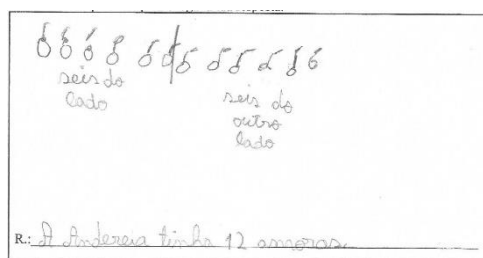 seis do
lado
seis do
outro
lado
R.: A Andereia tinha 12 amoras.